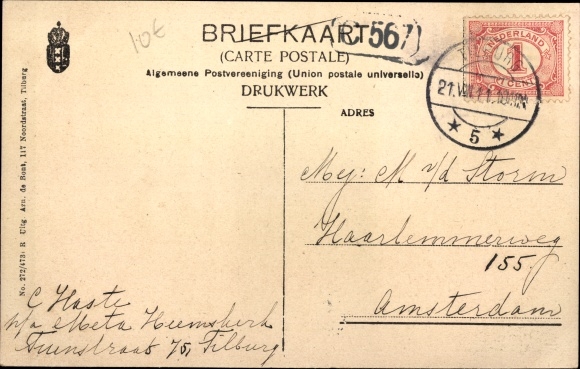 10€
BRIEFKAART
C 567
(CARTE POSTALE)
Algemeene Postvereeniging (Union postale universelle)
DRUKWERK
NEDERLAND
1
CENT
5
ADRES
Mej: M v/d Storm
Haarlemmerweg
155.
Amsterdam
C Haste
p/a Meta Heemskerk
Tuinstraat 75, Tilburg
No. 272/473: R Uitg. Arn. de Bont, 117 Noordstraat, Tilburg